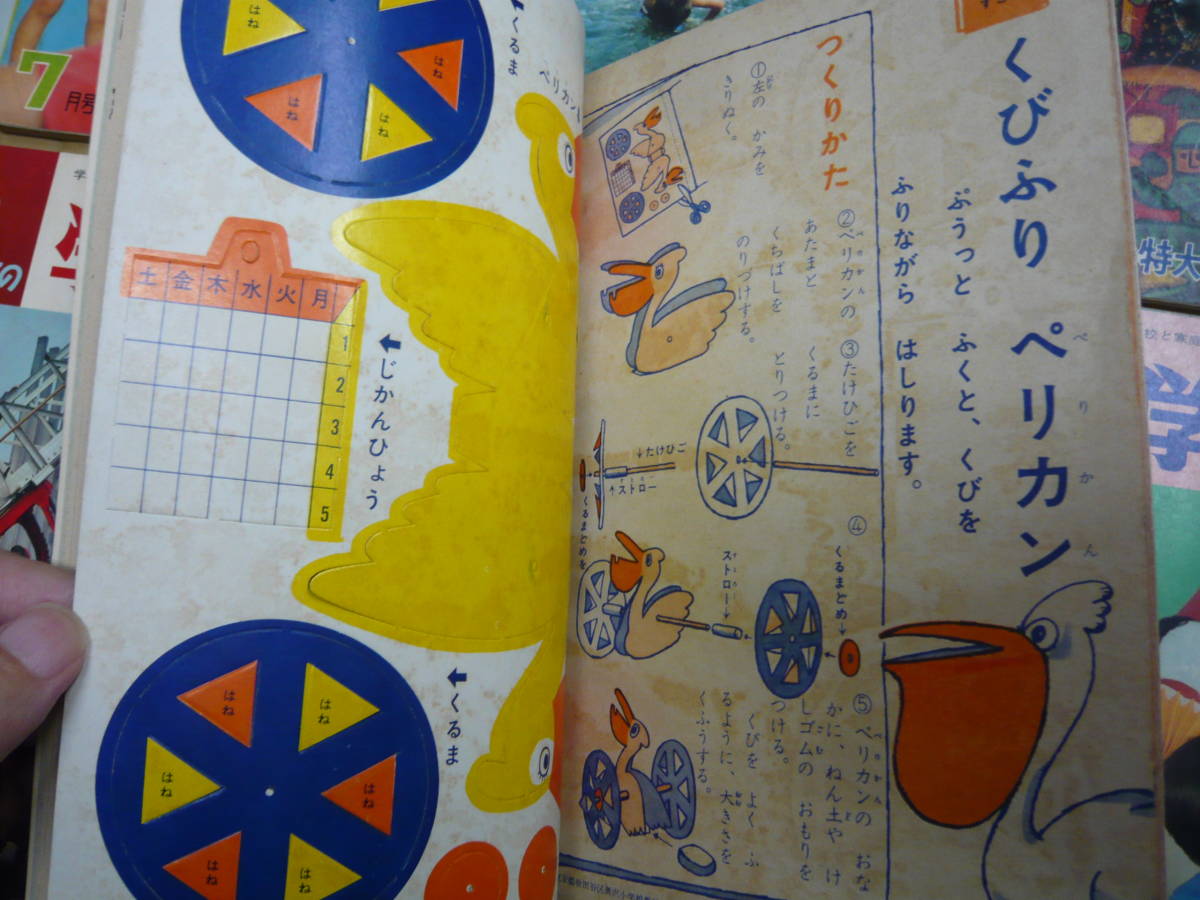 くびふり ペリカン
ぺりかん
ぷうっと ふくと、くびを
ふりながら はしります。
つくりかた
①左の かみを
きりぬく。
②ペリカンの
あたまと
くちばしを
のりづけする。
③たけひごを
くるまに
とりつける。
↓たけひご
↑ストロー
くるまとめを
④
くるまとめ→
ストロー→
⑤ペリカンの おな
かに、ねん土や け
しゴムの おもりを
つける。
くびを よく ふ
るように、大きさを
くふうする。
←くるま
はね
はね
はね
はね
ペリカン
←じかんひょう
土 金 木 水 火 月
1
2
3
4
5
←くるま
はね
はね
はね
はね
はね
はね
7
月号
特大
校と家庭
学